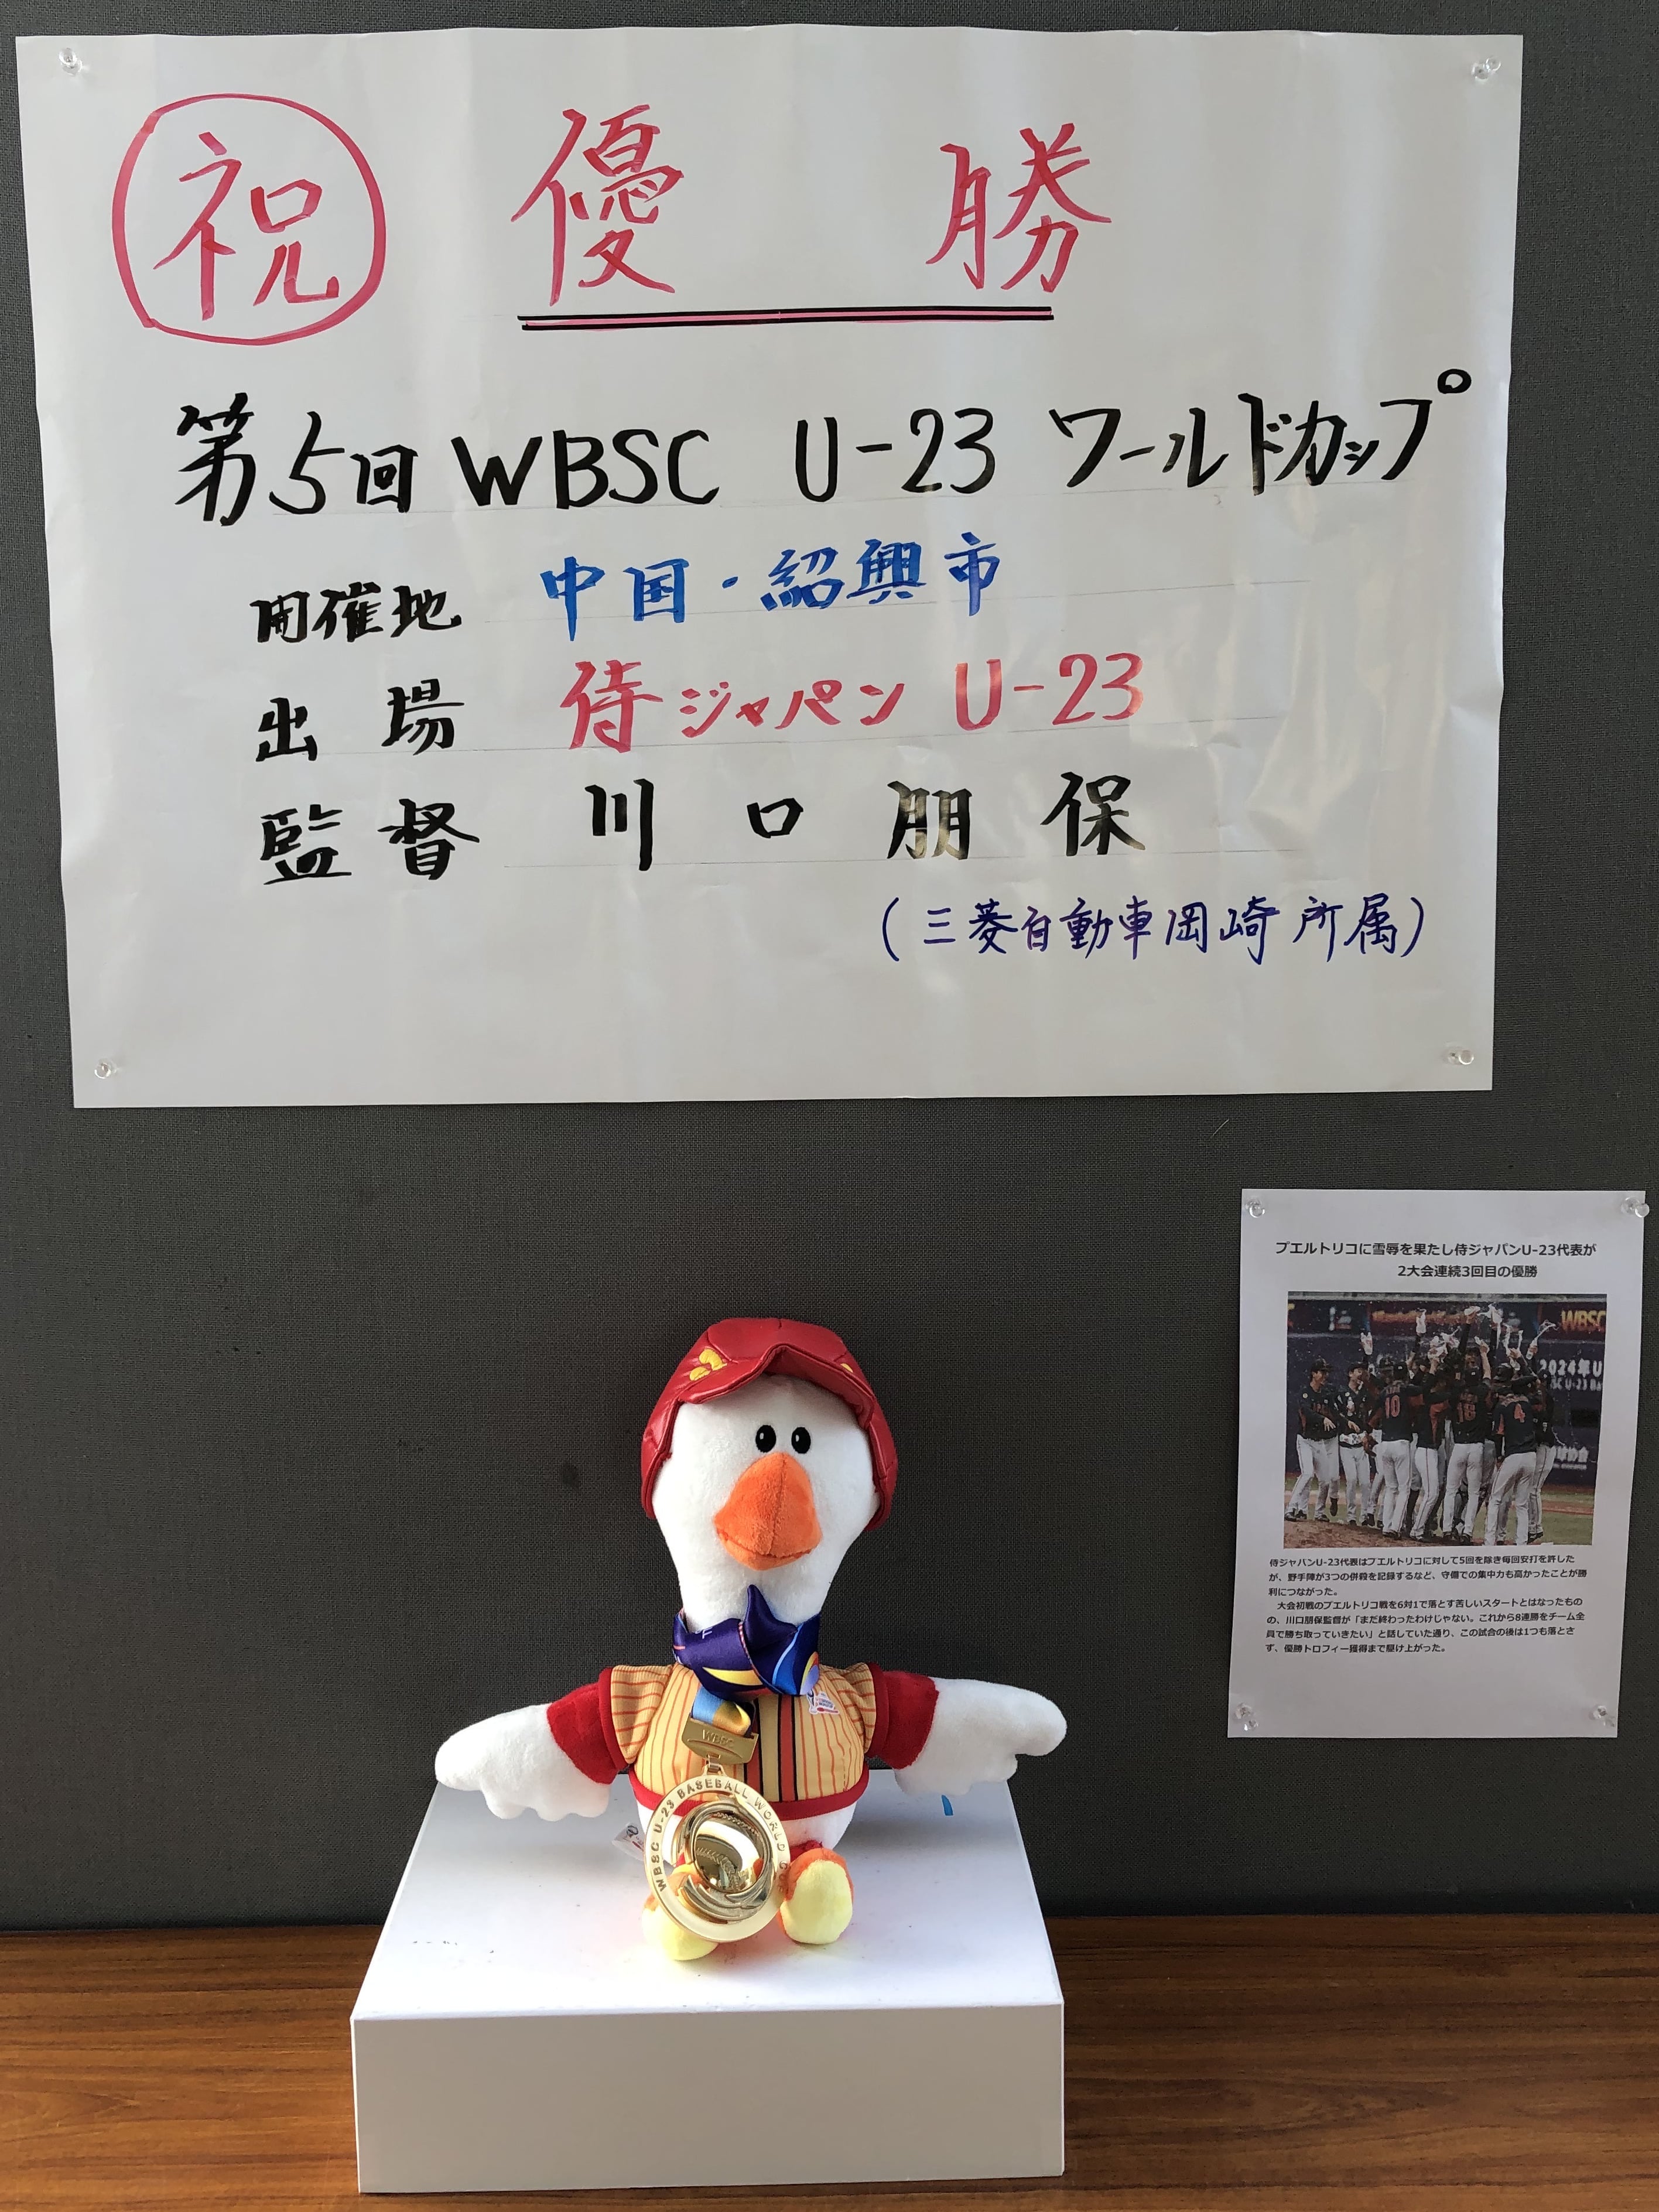 祝 優勝
第5回 WBSC U-23 ワールドカップ
開催地 中国・紹興市
出場 侍ジャパン U-23
監督 川口朋保
(三菱自動車岡崎 所属)
プエルトリコに雪辱を果たし侍ジャパンU-23代表が
2大会連続3回目の優勝
WBSC
2024年U
SC U-23 Ba
10
18
4
侍ジャパンU-23代表はプエルトリコに対して5回を除き毎回安打を許した
が、野手陣が3つの併殺を記録するなど、守備での集中力も高かったことが勝
利につながった。
大会初戦のプエルトリコ戦を6対1で落とす苦しいスタートとはなったもの
の、川口朋保監督が「まだ終わったわけじゃない。これから8連勝をチーム全
員で勝ち取っていきたい」と話していた通り、この試合の後は1つも落とさ
ず、優勝トロフィー獲得まで駆け上がった。
WBSC
WBSC U-23 BASEBALL WORLD